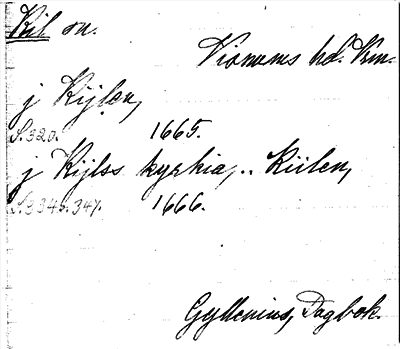 Kil sn.
Visnums hd. Vrm.
j Kijlen,
S. 320. 1665.
j Kijlss kyrkia, .. Kiilen,
S. 334 o. 347. 1666.
Gyllenius, Dagbok.